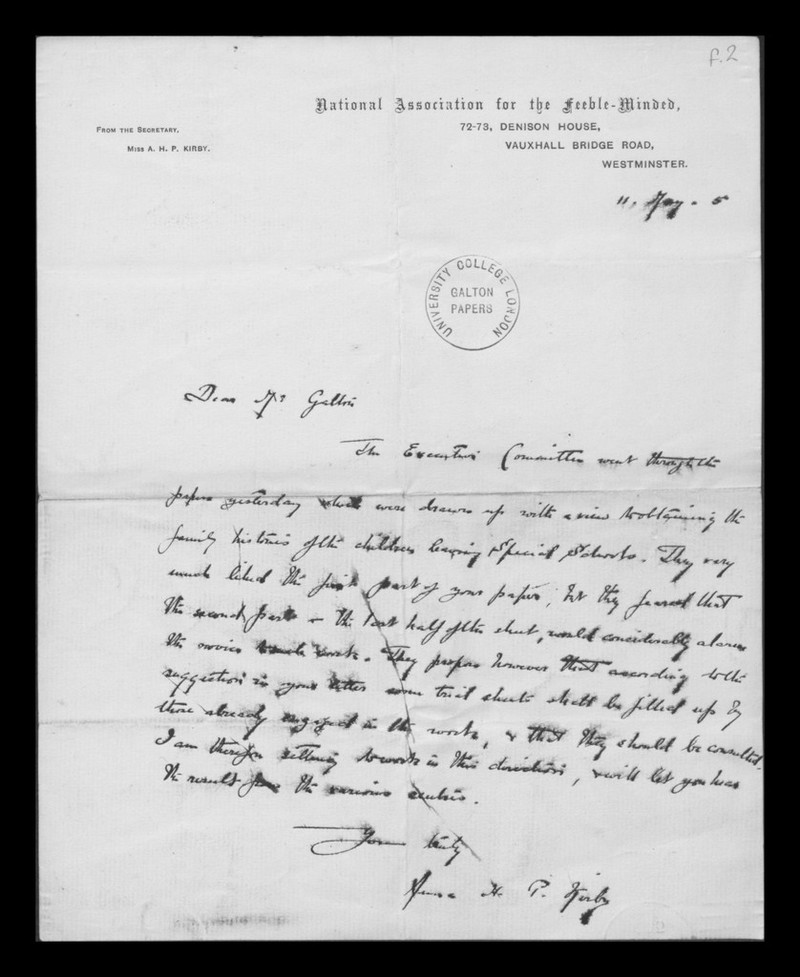 f.2
National Association for the Feeble-Minded,
72-73, DENISON HOUSE,
VAUXHALL BRIDGE ROAD,
WESTMINSTER.
FROM THE SECRETARY,
MISS A. H. P. KIRBY.
11. May. 5
UNIVERSITY COLLEGE LONDON
GALTON
PAPERS
Dear Mr Galton
The Executive Committee went through the
papers yesterday which were drawn up with a view to obtaining the
family histories of the children leaving Special Schools. They very
much liked the first part of your paper, but they feared that
the second part - the last half of the sheet, would considerably alarm
the novice work. They propose however that according to the
suggestion in your letter some trial sheets shall be filled up by
those already engaged in the work, & that they should be consulted.
I am therefore setting to work in this direction, & will let you hear
the result from the various centres.
Yours truly
Anna H. P. Kirby